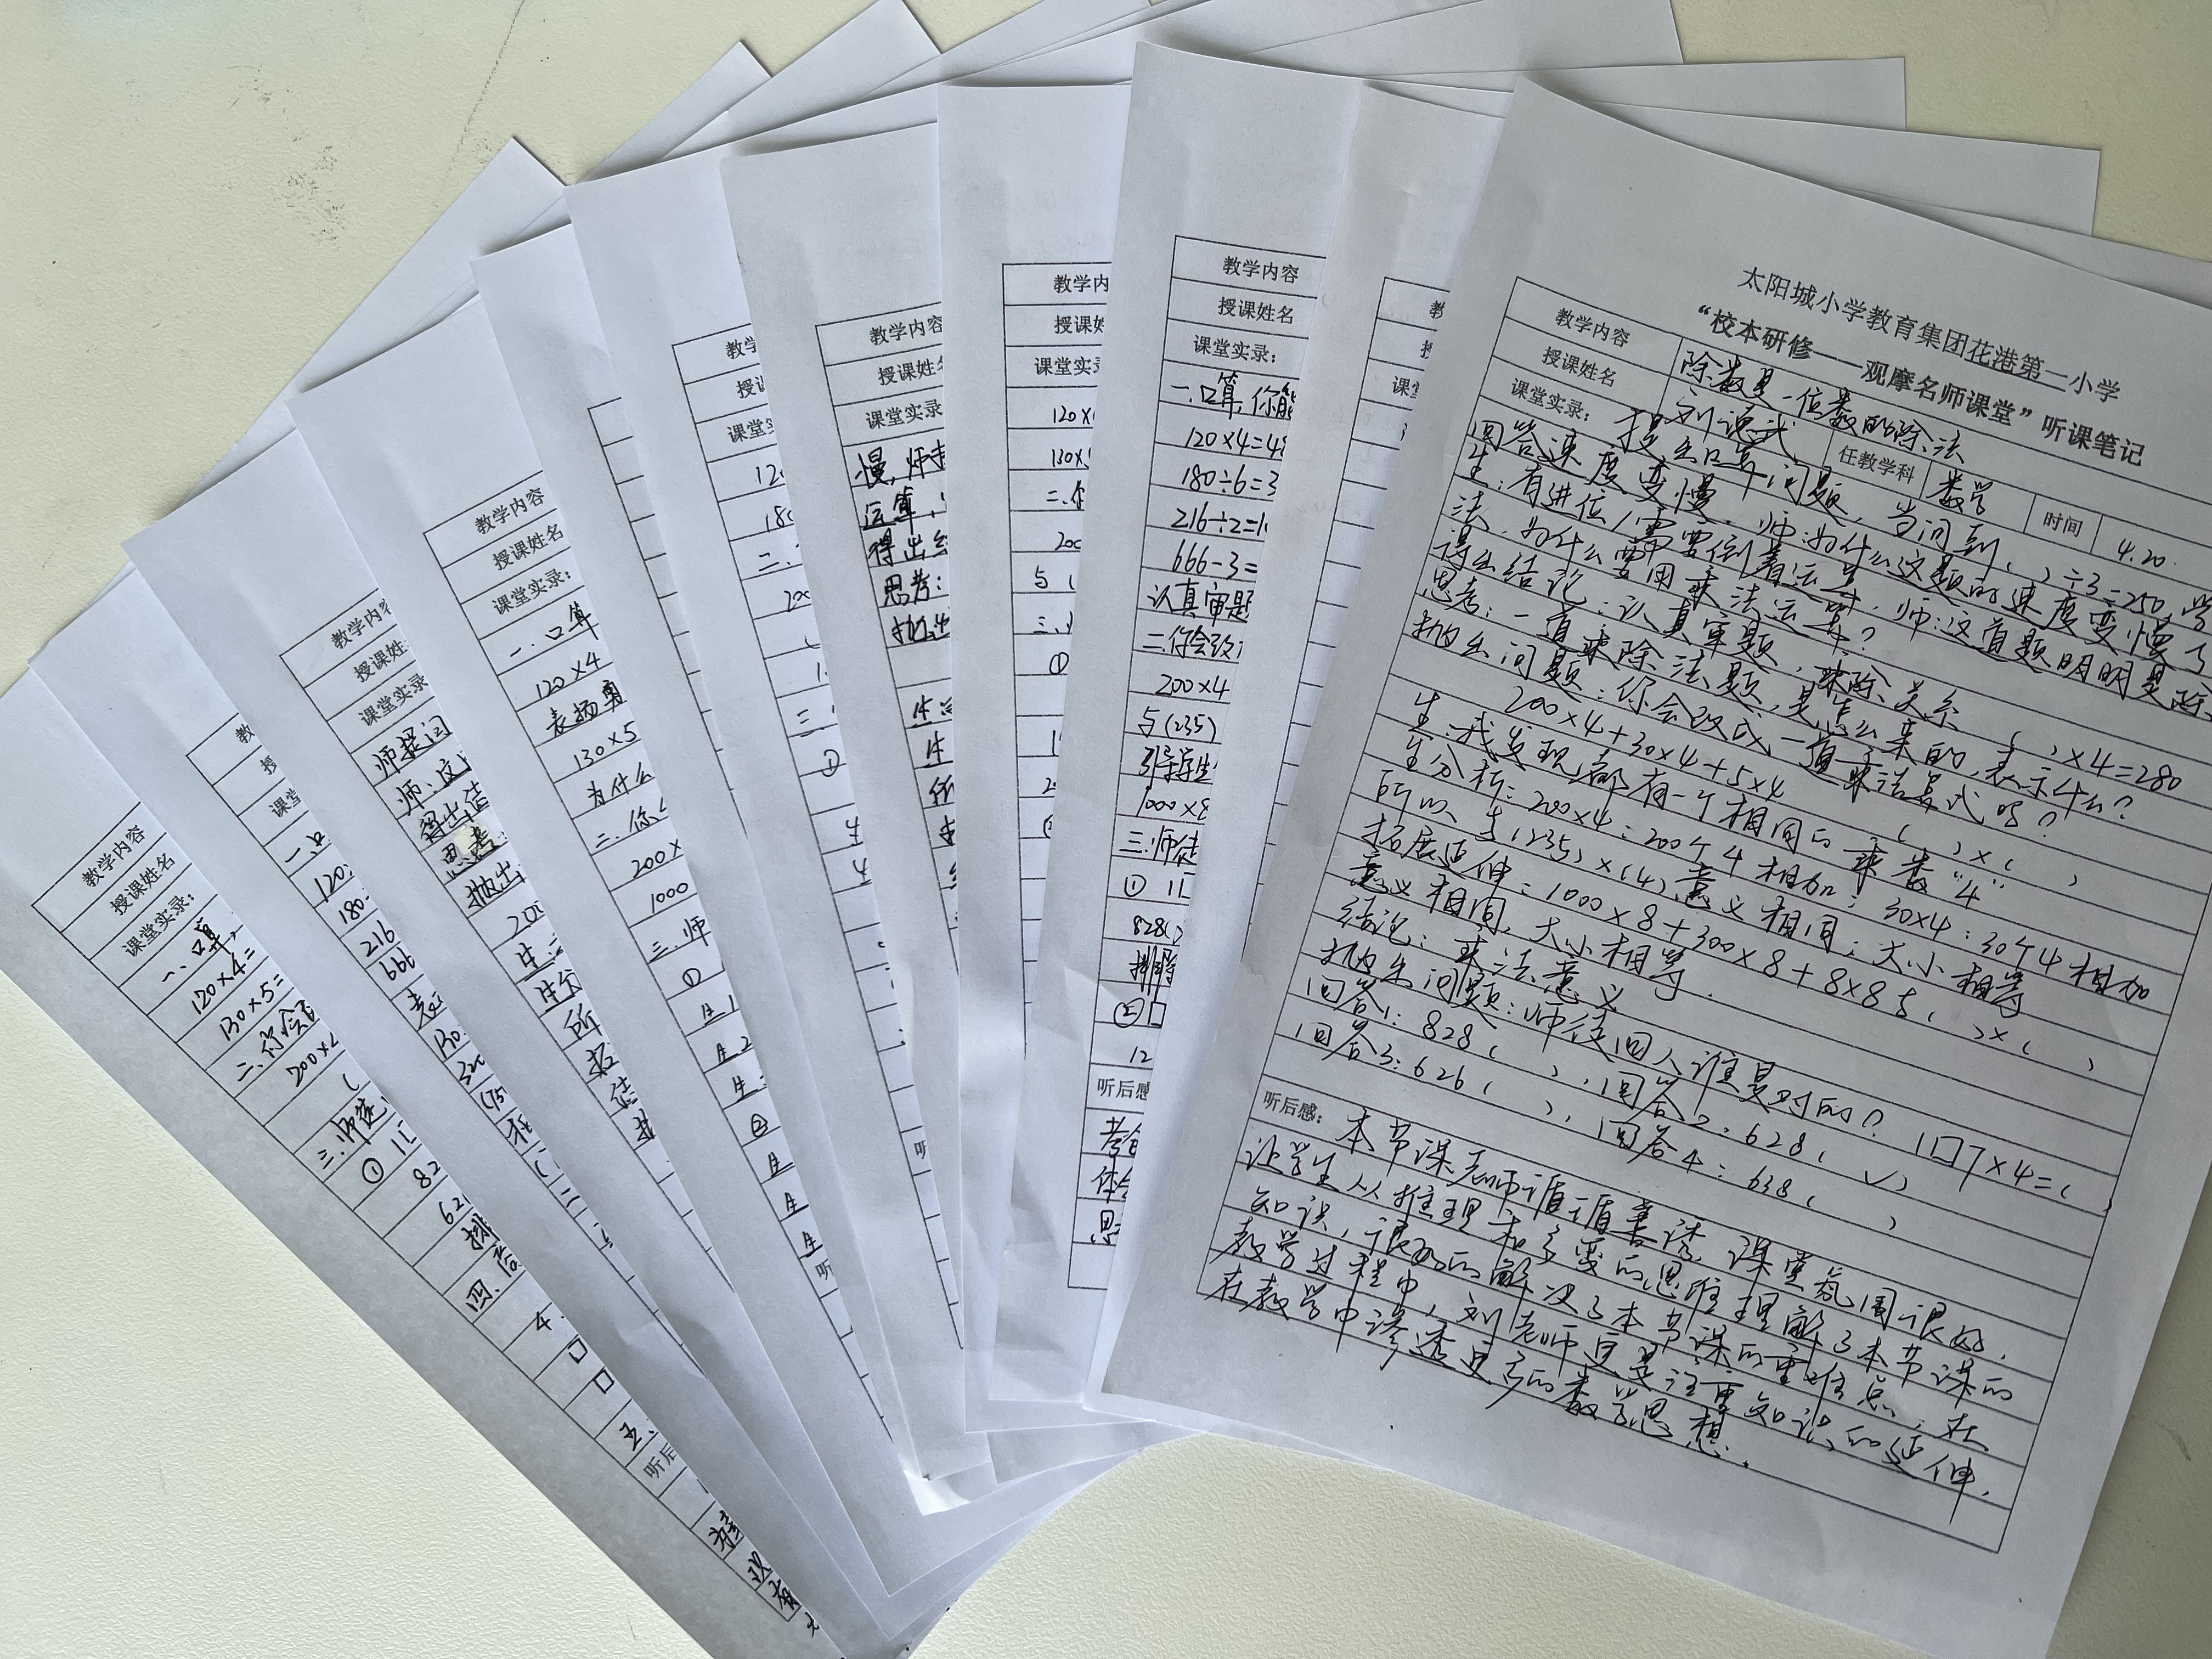 太阳城小学教育集团花港第一小学
“校本研修——观摩名师课堂”听课笔记
教学内容 除数是一位数的除法
授课姓名 刘德武 任教学科 数学 时间 4.20.
课堂实录： 提出口算问题，当问到( )÷3=250，学
回答速度变慢。师：为什么这题的速度变慢了
生：有进位/需要倒着运算，师：这道题明明是除
法，为什么要用乘法运算？
得出结论：认真审题，乘除关系 ( )×4=280
思考：一道乘除法题，是怎么来的，表示什么？
抛出问题：你会改成一道乘法算式吗？
200×4+30×4+5×4 ( )×( )
生：我发现都有一个相同的乘数“4”
生分析：200×4：200个4相加；30×4：30个4相加
所以与(235)×(4)意义相同；大小相等
拓展延伸：1000×8+300×8+8×8与( )×( )
意义相同，大小相等.
结论：乘法意义
抛出问题：师徒四人谁是对的？1口7×4=( )
回答1：828( )，回答2：628(√)
回答3：626( )，回答4：638( )
听后感： 本节课老师谆谆善诱，课堂氛围很好，
让学生从推理和多变的思维理解了本节课的
知识，很好的解决了本节课的重难点，在
教学过程中，刘老师更是注重知识的延伸，
在教学中渗透更多的数学思想.
教学内容
授课姓名
课堂实录：
一.口算,你能
120×4=48
180÷6=3
216÷2=1
666-3=
认真审题
二.你会改
200×4
与(235)
引导学生
1000×8
三.师徒
① 1口
828(
排除
②口
12
听后感
体会
思
教学内
授课姓
课堂实
120×
130×
二.你
200
与(
三.
①
教学内容
授课姓名
课堂实录：
慢,师
运算,
得出结
思考：
抛出
生
所
教学
课堂实
二.
三.
①
教学内容
授课姓名
课堂实录：
一.口算
120×4
表扬
130×5
为什么
二.你
200×
1000
三.师
①
生1
生2
生
②
生
生
生
听
教学内容
授课姓名
课堂实录
师提问
师：这
得出结
思考
抛出
200
生：
生分
所
拓
结
课堂
120
180
216
666
130
320
教学内容
授课姓名
课堂实录：
一、口算，
120×4=
130×5=
二、你会
200×4
(
三.师徒
① 1口
82
62
排
四、
4
口
口
五、
听后